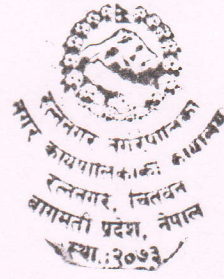 रत्ननगर नगरपालिका
नगर कार्यपालिकाको कार्यालय
रत्ननगर, चितवन
बागमती प्रदेश, नेपाल
स्था.:२०७३